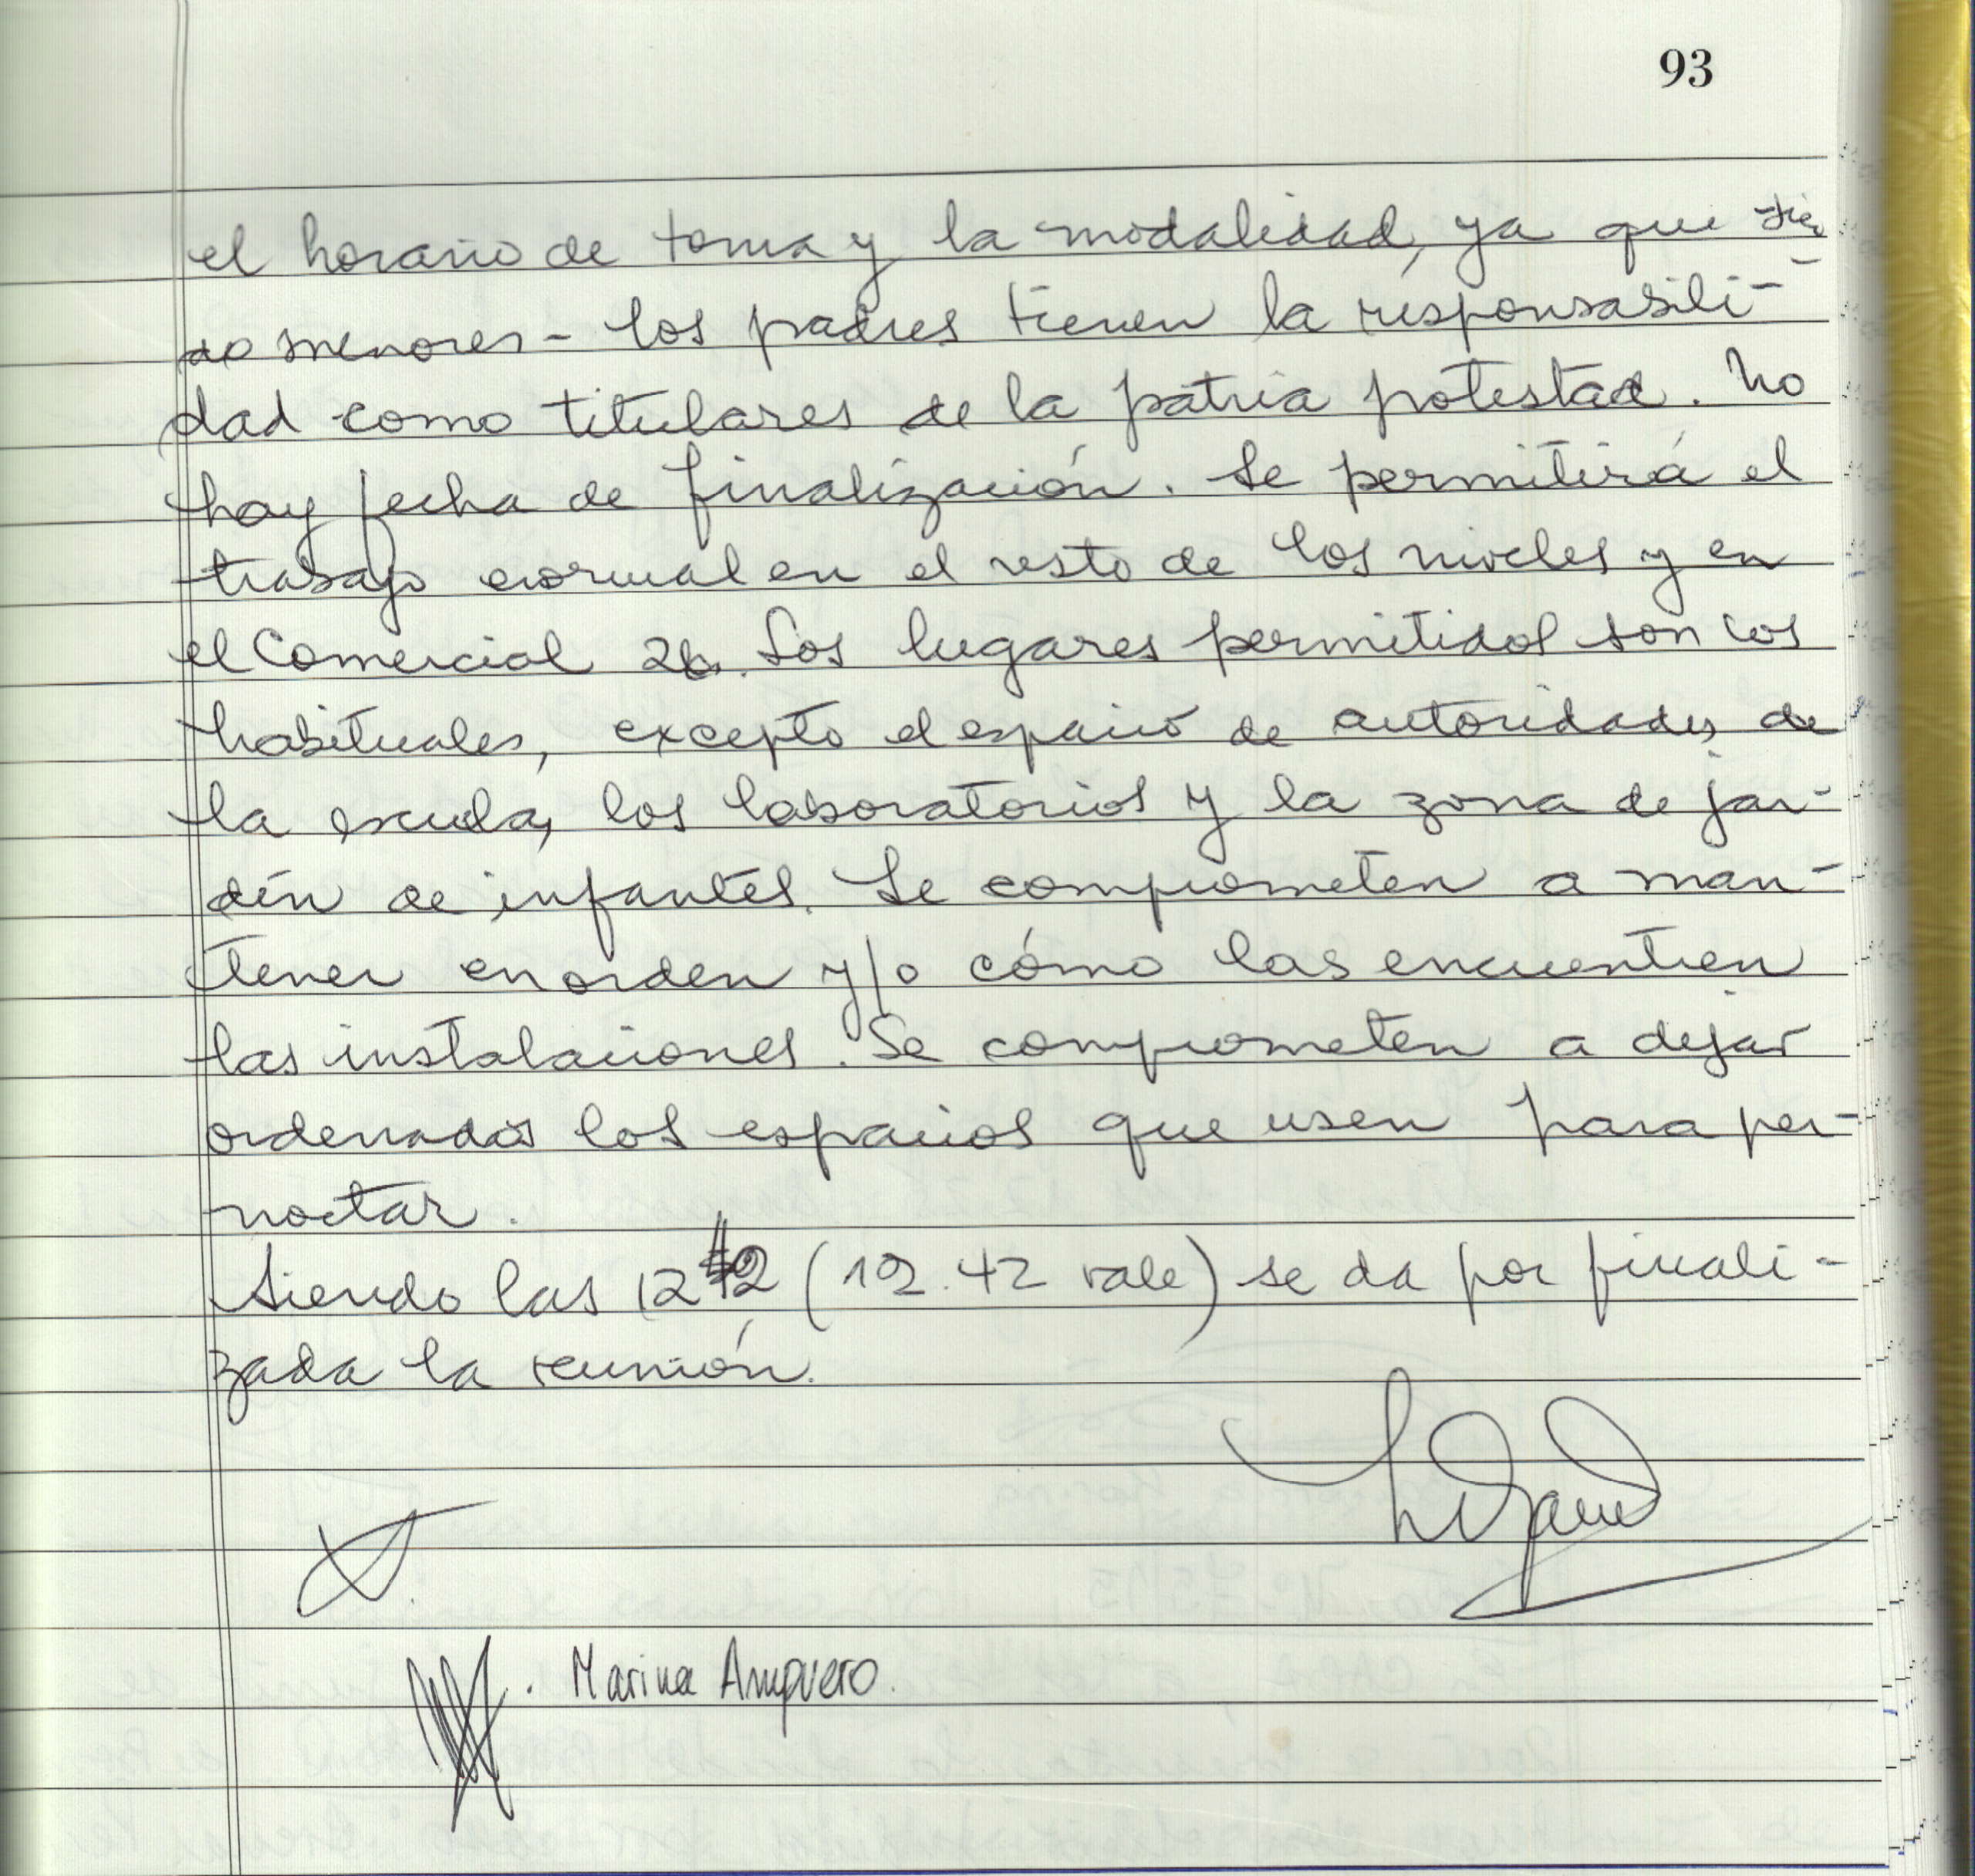 93
el horario de toma y la modalidad, ya que sien-
do menores - los padres tienen la responsabili-
dad como titulares de la patria potestad. No
hay fecha de finalización. Se permitirá el
trabajo normal en el resto de los niveles y en
el Comercial 26. Los lugares permitidos son los
habituales, excepto el espacio de autoridades de
la escuela, los laboratorios y la zona de jar-
dín de infantes. Se comprometen a man-
tener en orden y/o cómo las encuentren
las instalaciones. Se comprometen a dejar
ordenados los espacios que usen para per-
noctar.
Siendo las 12 42 (12.42 vale) se da por finali-
zada la reunión.
Marina Ampuero.